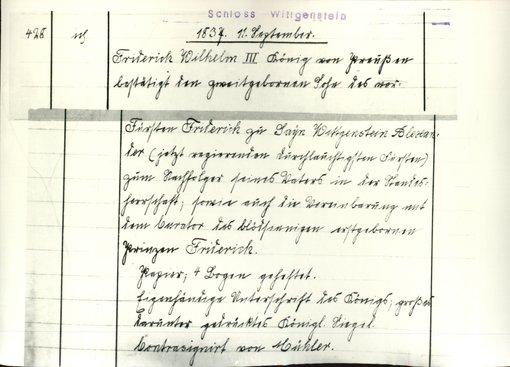 Schloss Wittgenstein
428
1837. 11. September.
Friderick Wilhelm III König von Preußen
bestätigt den zweitgebornen Sohn des vor.
Fürsten Friderick zu Sayn Wittgenstein Alexan-
der (jetzt regierenden durchlauchtigsten Fürsten)
zum Nachfolger seines Vaters in der Standes-
herrschaft; sowie auch die Vereinbarung mit
dem Curator des blödsinnigen erstgebornen
Prinzen Friderick.
Papier; 4 Bogen geheftet.
Eigenhändige Unterschrift des Königs; großes
darunter gedrücktes Königl. Siegel.
Contrasignirt von Mühler.